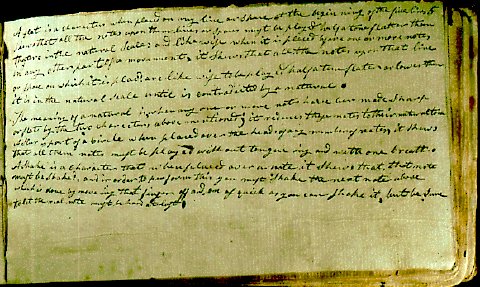 A flat is a character when placed on any line or Space at the beginning of the five lines
shews that all the notes upon that line or Space must be played half a tone flater than
they are in the natural Scale: and likewise when it is placed before one or more notes
in any other part of a movement it Shews that all the notes upon that line
or Space on which it is placed are likewise to be played half a tone flater or lower than
it is in the natural Scale until is contradicted by a natural.
The meaning of a natural is when any one or more notes have been made Sharp
or flat by the two characters above mentioned it reduces those notes to their natural tone
a sort of a circle when placed over the head of any number of notes, it shews
that all them notes must be played without tongueing and with one breath.
A Shake is a character that when placed over a note it shews that that note
must be Shaked: and in order to perform this you must Shake the next note above
which is done by moving that finger of and on of quick as you can Shake it, but be Sure
to let the note must be heard